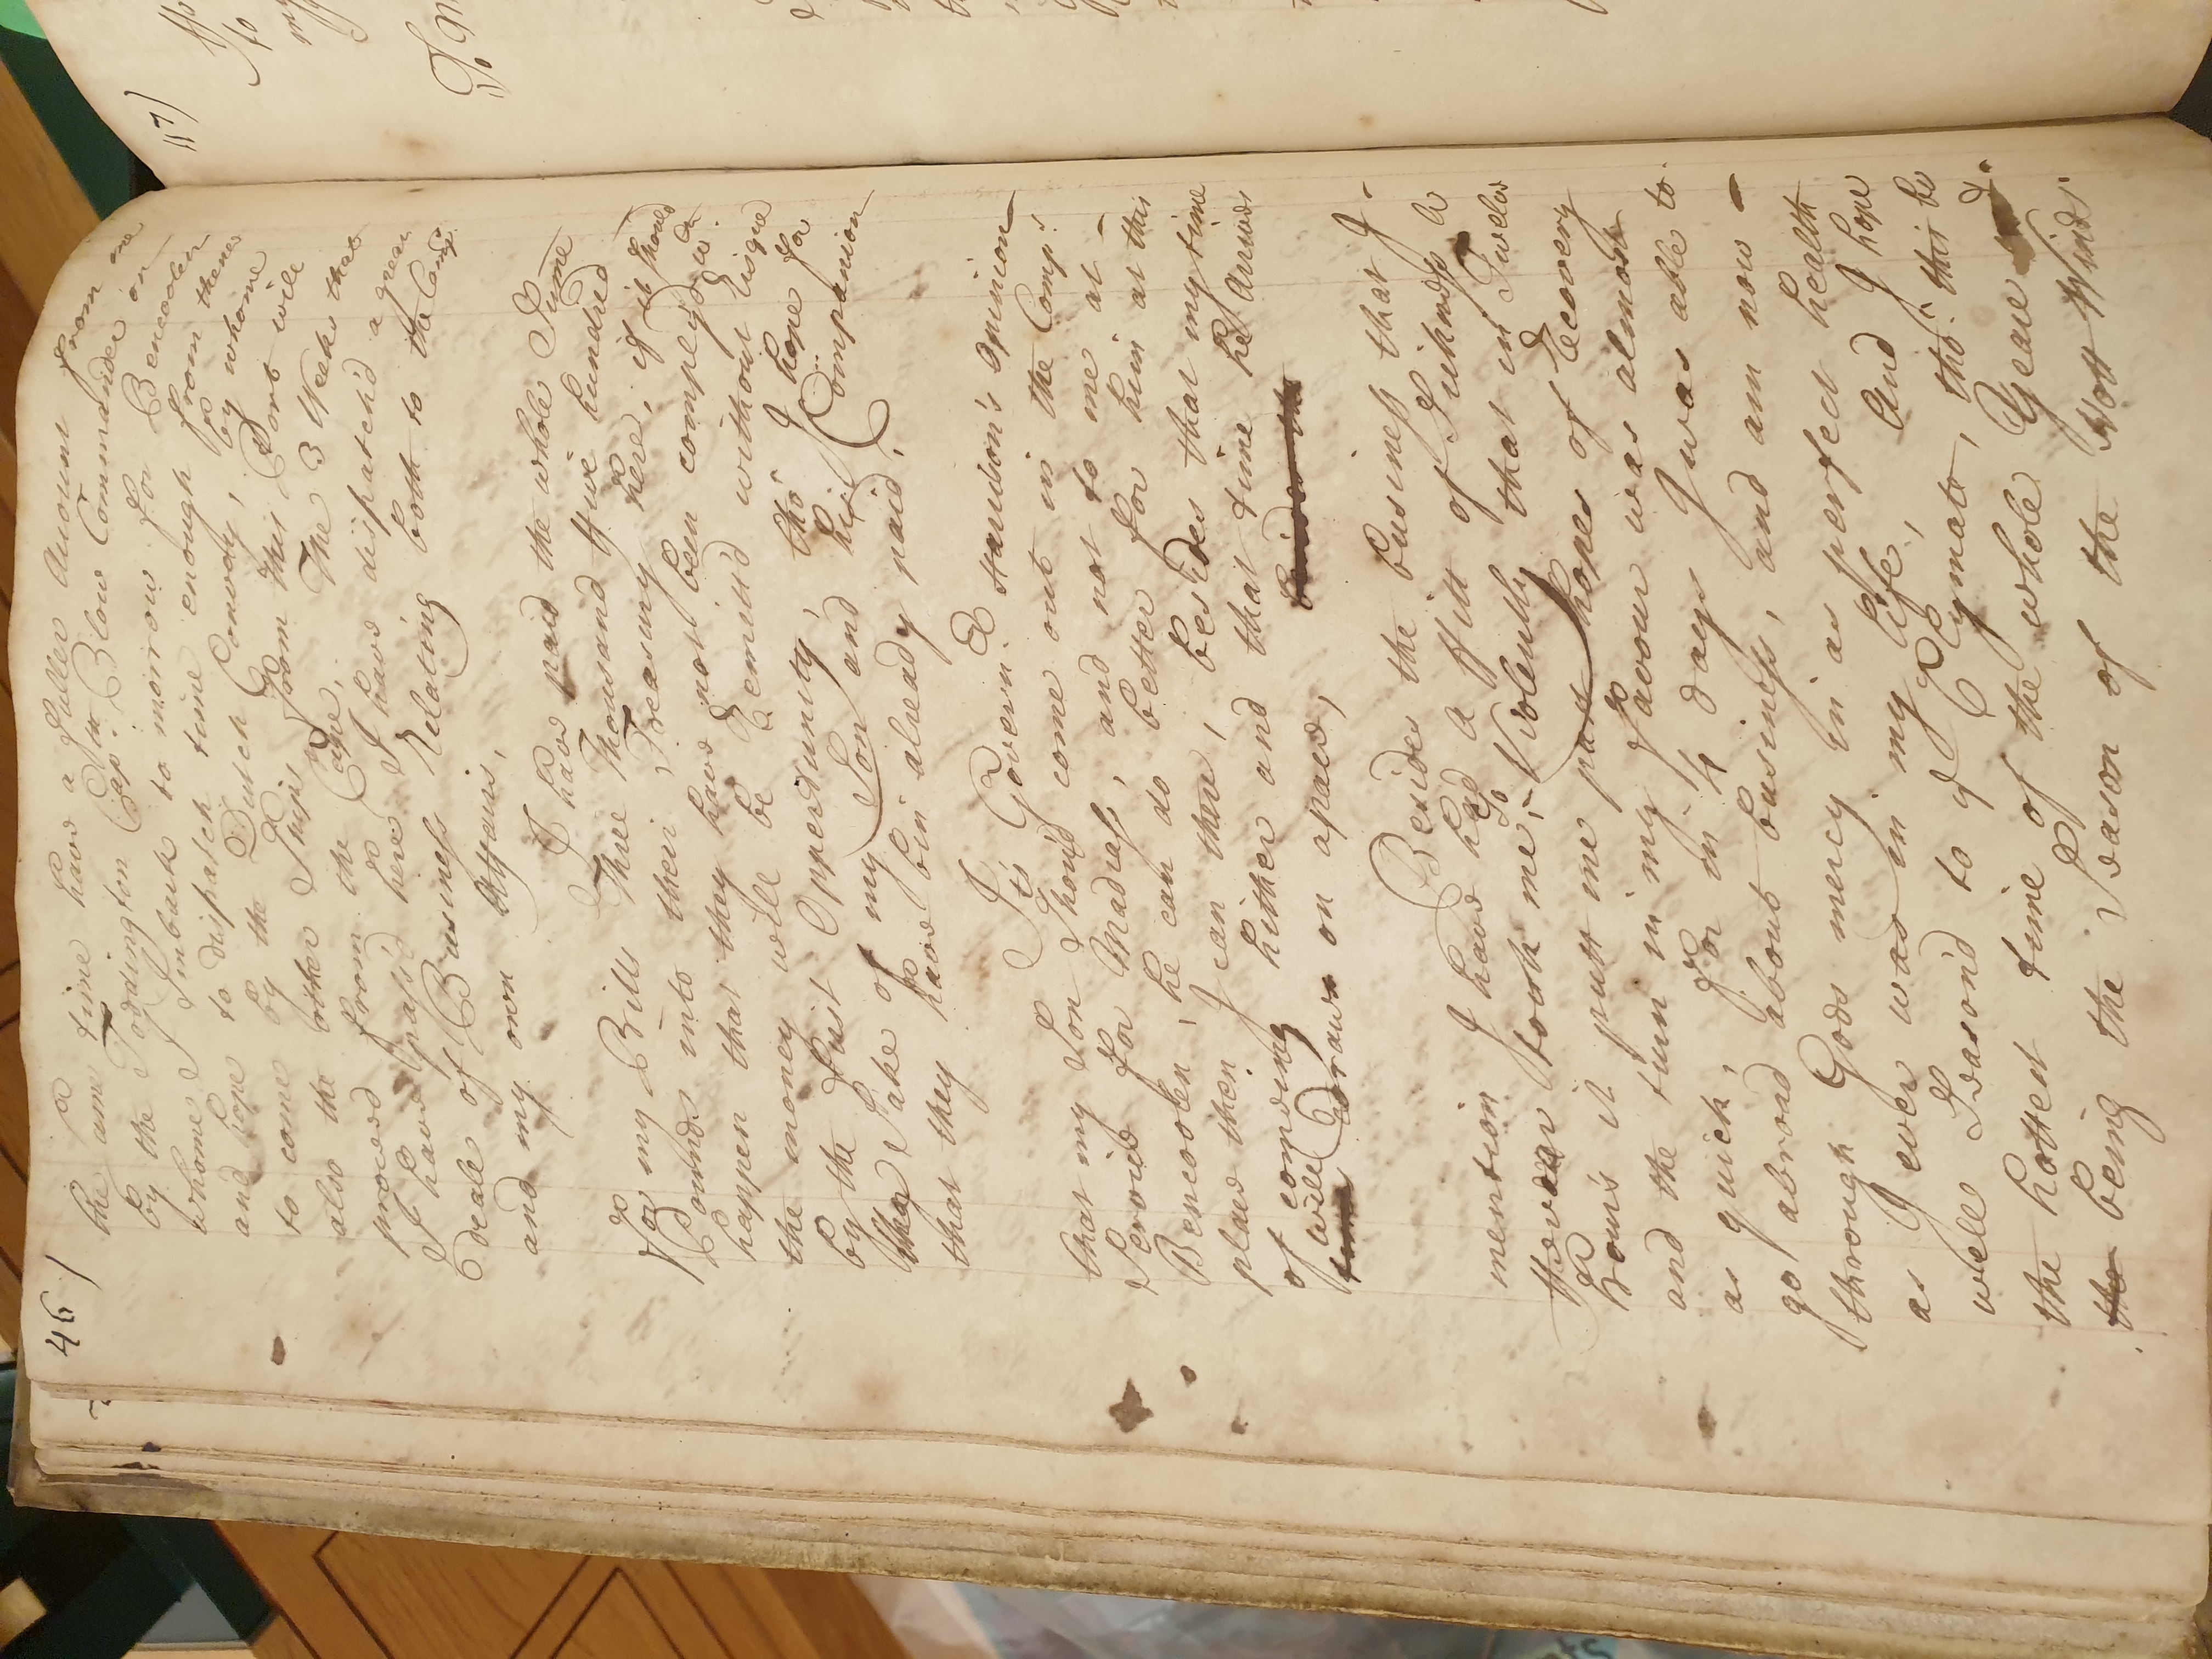 46)
he came time have a fuller Account from me
by the Todington Cap: Tho: Blow Commander on
whome I imbark to morrow for Bencoolen
and hope to dispatch time enough from thence
to come by the Dutch Convoy, by whome
also the other Ships from this Port will
proceed from the Cape, The 3 Weeks that
I have pass'd here I have dispatch'd a great
deale of Business Relating both to the Comp.
and my own Affairs,
I have paid the whole Sume
of my Bills Three Thousand ffive hundred
Pounds into their Treasury here, if it should
happen that they have not been comply'd wth.
the money will be Remitted without Risque
by the first Opportunity, tho' I hope for
the Sake of my Son and his Companion
that they have bin already paid,
It's Govern:r Harrison's Opinion
that my Son Should come out in the Comp.s
Service for Madrass, and not to me at
Bencoolen, he can do better for him at this
place then I can there, besides that my time
of comeing hither and that time he arrives
will Draw on apace,
Besides the business that I
mention I have had a ffitt of Sickness a
ffever took me so Violently that in Twelve
hours it putt me past hopes of Recovery
and the turn in my favour was almost
as quick, for in 4 days I was able to
go abroad about business, and am now
through Gods mercy in as perfect health
as I ever was in my Life, And I hope
well Seasond to ye Clymate, tho: this be
the hottest time of the whole Yeare
the being the Season of the Hott Winds.
117)